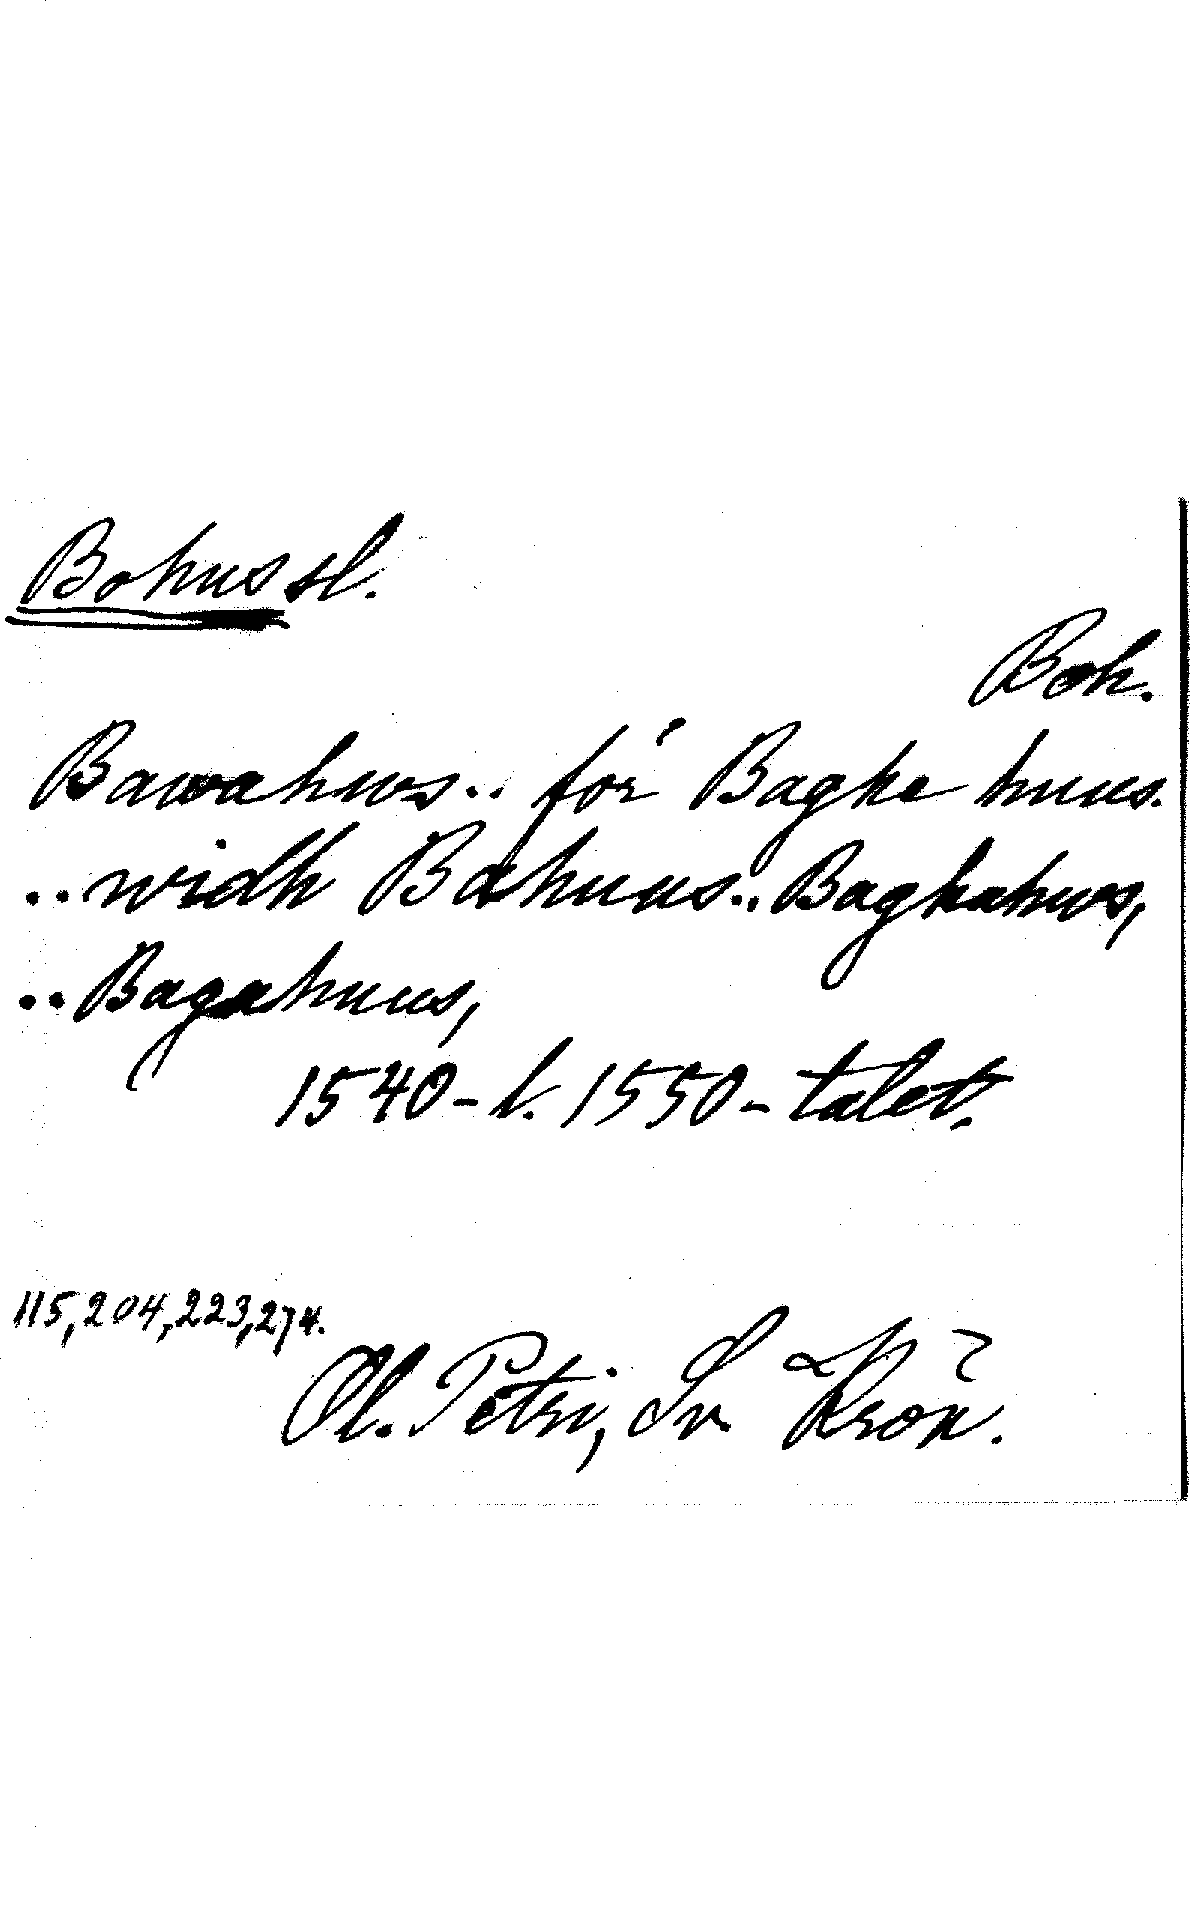 Bohus sl.
Boh.
Bawahws.. för Baghe huus.
..widh Bahuus.. Baghahws,
..Bagahuus,
1540- l. 1550-talet.
115, 204, 223, 274.
Ol. Petri, Sv. Krön.